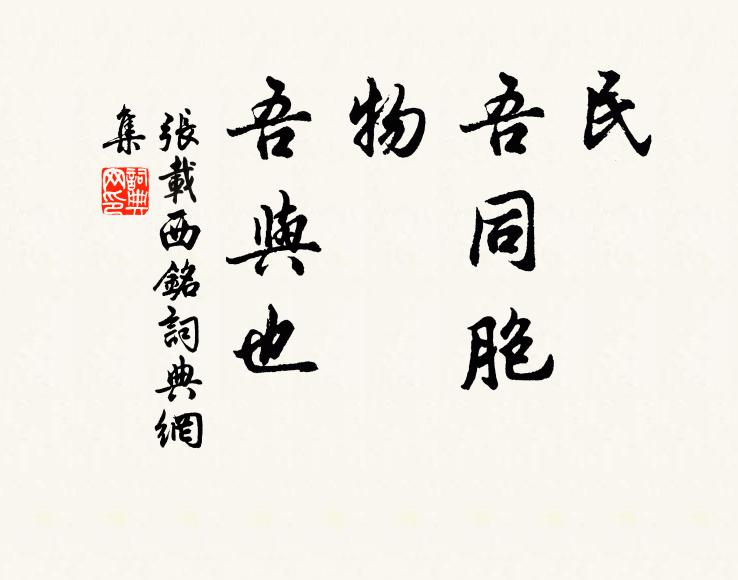 民
吾同胞
物
吾與也
張載西銘詞典網
集
詞典
网印